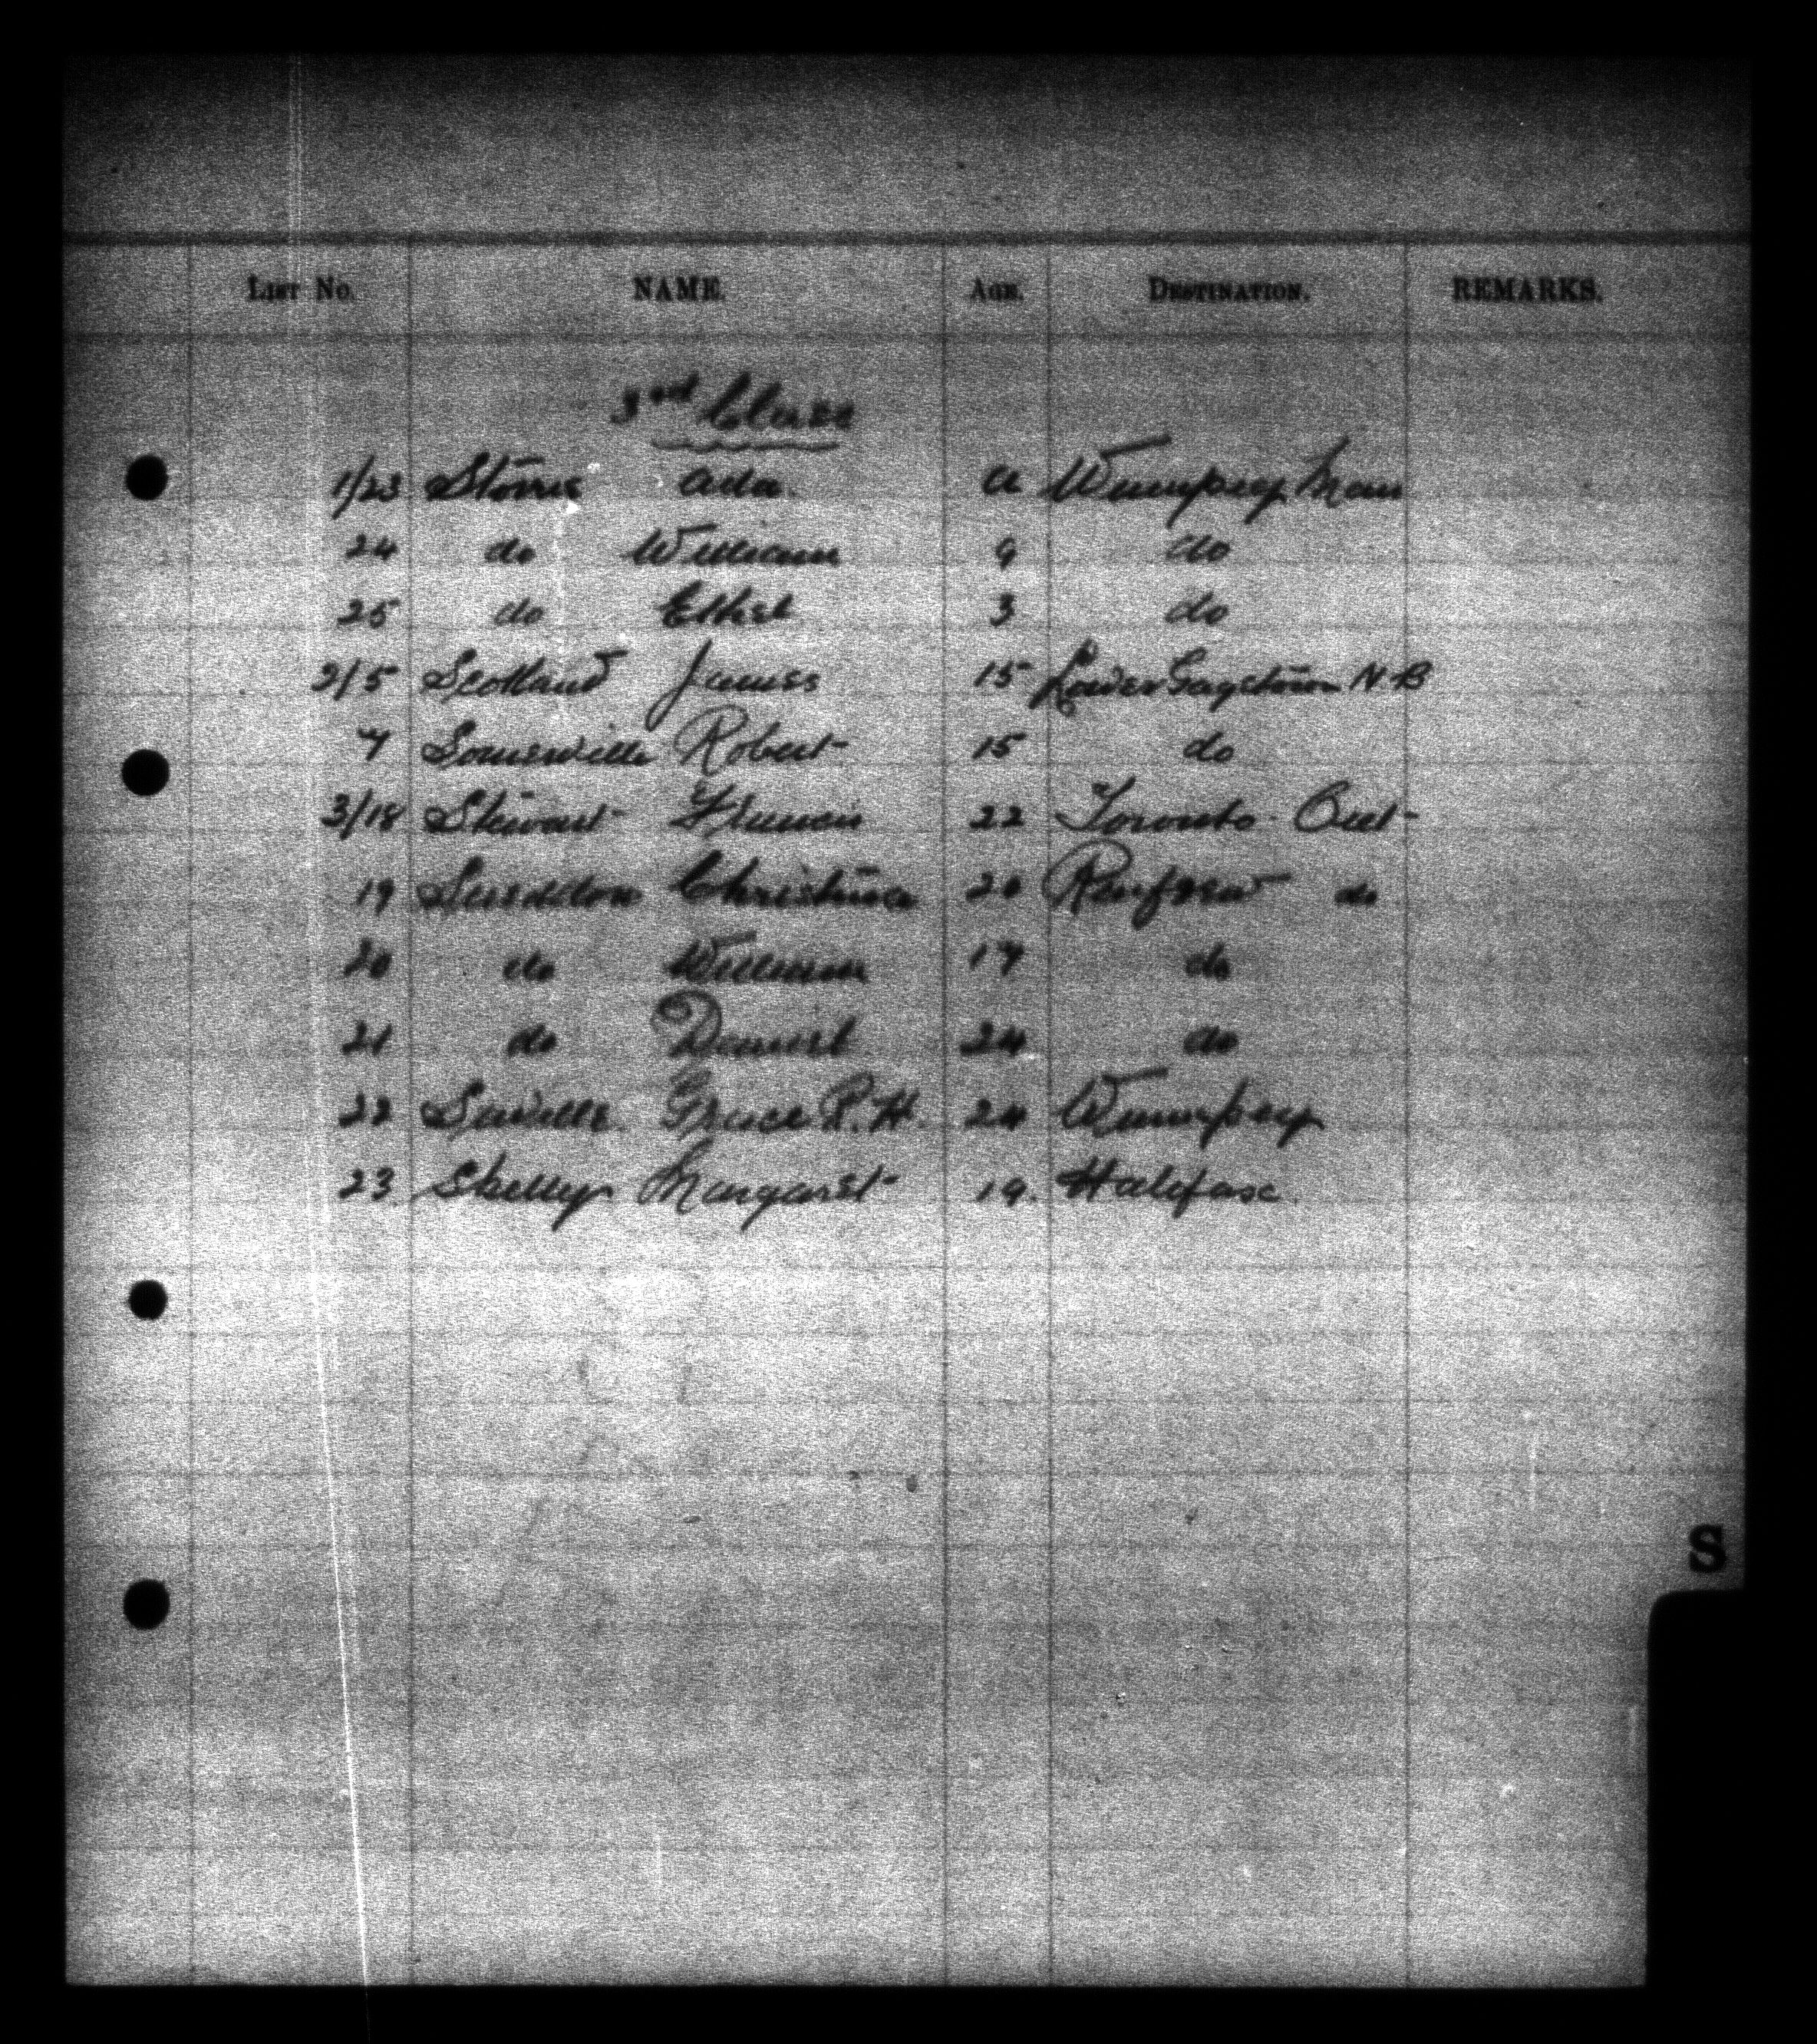 LIST No. NAME. AGE. DESTINATION. REMARKS.
3rd Class
1/23 Storrie Ada a Winnipeg Man
24 do William 9 do
25 do Ethel 3 do
2/5 Scotland James 15 Lower Gagetown N-B
7 Somerville Robert 15 do
3/18 Stewart Francis 22 Toronto Ont
19 Christina 20 Renfrew do
20 do William 17 do
21 do Daniel 24 do
22 Saville Grace R.H. 24 Winnipeg
23 Skelly Margaret 19. Halifax
S